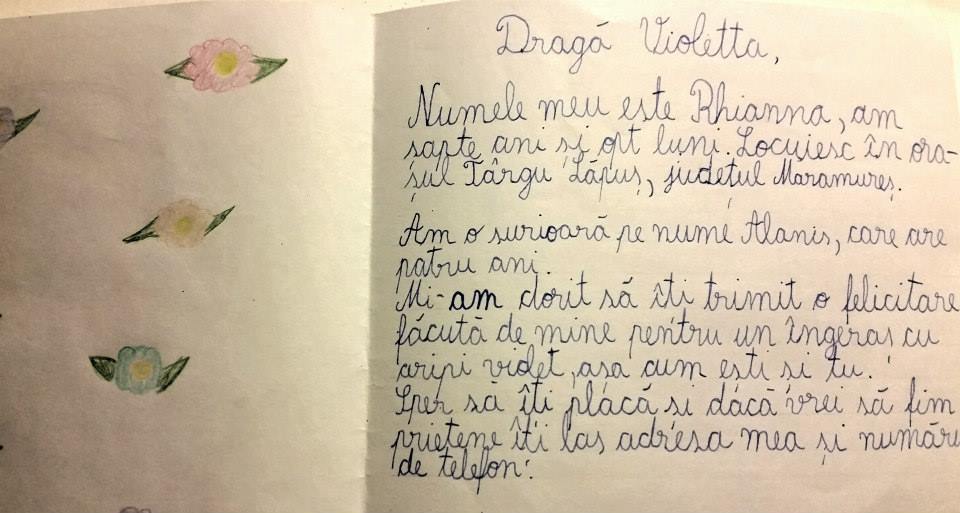 Dragă Violetta,
Numele meu este Rhianna, am
șapte ani și opt luni. Locuiesc în ora-
șul Târgu Lăpuș, județul Maramureș.
Am o surioară pe nume Alanis, care are
patru ani.
Mi-am dorit să îți trimit o felicitare
făcută de mine pentru un îngeraș cu
aripi violet, așa cum ești și tu.
Sper să îți placă și dacă vrei să fim
prietene îți las adresa mea și număru
de telefon: